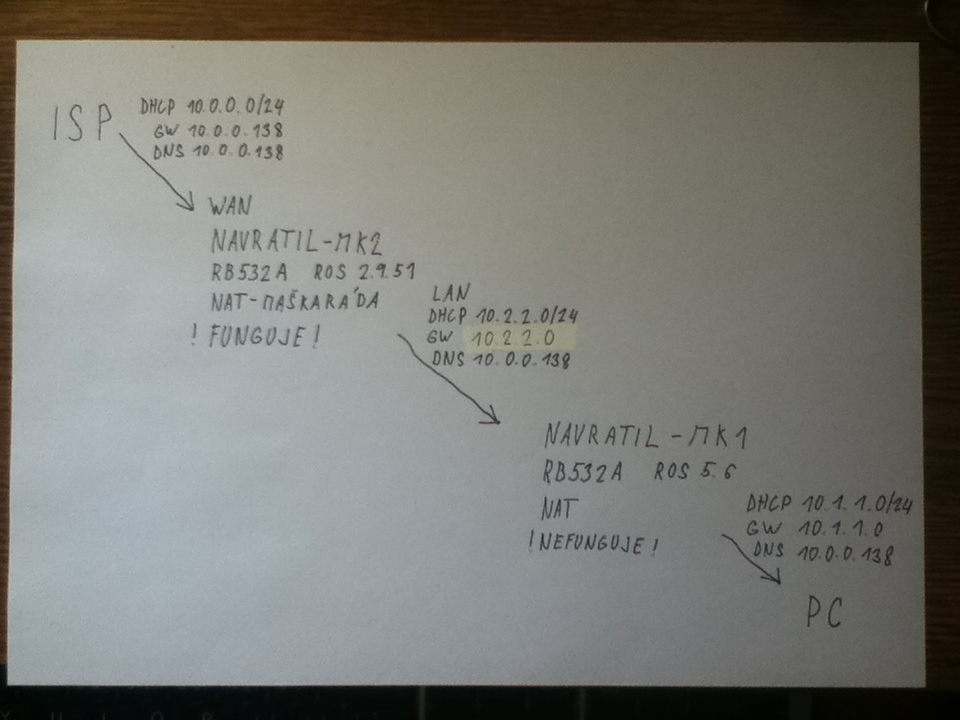 ISP
DHCP 10.0.0.0/24
GW 10.0.0.138
DNS 10.0.0.138
WAN
NAVRATIL-MK2
RB532A ROS 2.9.51
NAT-MAŠKARÁDA
! FUNGUJE !
LAN
DHCP 10.2.2.0/24
GW 10.2.2.0
DNS 10.0.0.138
NAVRATIL-MK1
RB532A ROS 5.6
NAT
! NEFUNGUJE !
DHCP 10.1.1.0/24
GW 10.1.1.0
DNS 10.0.0.138
PC